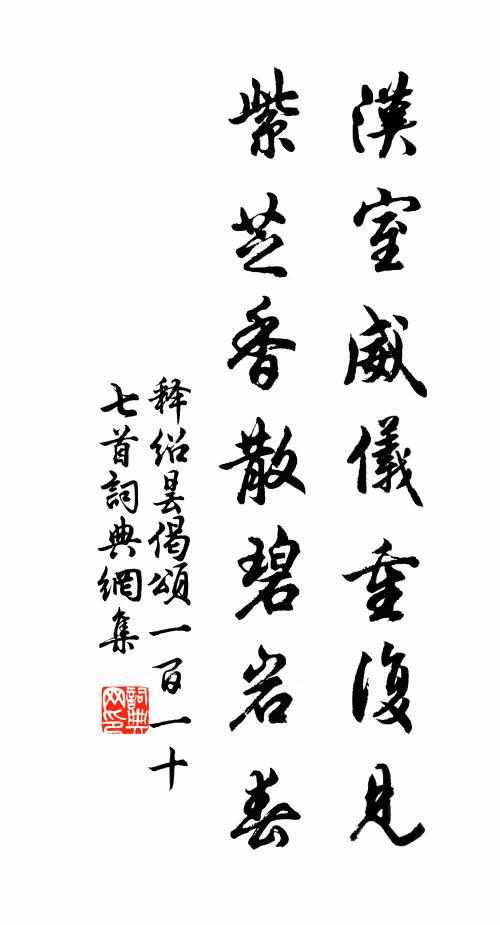 漢室威儀重復見
紫芝香散碧岩春
释绍昙偈頌一百一十
七首詞典網集
詞典網印